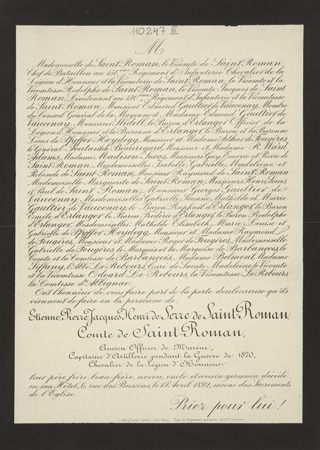 110247 III
M
Mademoiselle de Saint Roman, le Vicomte de Saint Roman,
Chef de Bataillon au 131ème Régiment d'Infanterie Chevalier de la
Légion d'Honneur et la Vicomtesse de Saint Roman, le Vicomte et la
Vicomtesse Rodolphe de Saint Roman, le Vicomte Jacques de Saint
Roman, Lieutenant au Régiment d'Infanterie et la Vicomtesse
de Saint Roman, Monsieur Edmond Gaultier de Vaucenay, Membre
du Conseil Général de la Mayenne et Madame Edmond Gaultier de
Vaucenay, Monsieur le Baron d'Erlanger Officier de la
Légion d'Honneur et la Baronne d'Erlanger, le Baron et la Baronne
Louis de Pfyffer Heydegg, Monsieur et Madame Athus de Fougères,
le Général Beauregard, Monsieur et Madame R. Ward
Adams, Madame Madison Monsieurs Guy, Pierre et
de Saint Roman, Mesdemoiselles Isabelle, Gabrielle, Madeleine et
Yolande de Saint Roman, Monsieur Raymond de Saint Roman,
Mademoiselle Marguerite de Saint Roman, Messieurs Henri, Louis
et Paul de Saint Roman, Monsieur Georges Gaultier de
Vaucenay, Mesdemoiselles Gabrielle, Jeanne, Mathilde et Marie
Gaultier de Vaucenay, le Baron Raphaël d'Erlanger, le Baron
Emile d'Erlanger, le Baron Frédéric d'Erlanger, le Baron Rodolphe
d'Erlanger, Mesdemoiselles Mathilde, Elisabeth, Marie, Louise et
Gabrielle de Pfyffer Heydegg, Monsieur et Madame Raymond
de Fougères, Monsieur et Madame Roger de Fougères, Mademoiselle
Gabrielle de Fougères, le Marquis et la Marquise de Barbançois, le
Comte et la Comtesse de Barbançois, Madame Belmont, Madame
Tiffany, l'Abbé Le Rebours, Curé de Sainte Madeleine, le Vicomte
et la Vicomtesse Edouard Le Rebours, la Vicomtesse Le Rebours,
la Comtesse d'Albignac,
Ont l'honneur de vous faire part de la perte douloureuse qu'ils
viennent de faire en la personne de
Etienne, Pierre, Jacques, Henri de Serre de Saint Roman,
Comte de Saint Roman,
Ancien Officier de Marine,
Capitaine d'Artillerie pendant la Guerre de 1870,
Chevalier de la Légion d'Honneur
leur père, frère, beau-frère, neveu, oncle et cousin-germain, décédé
en son Hôtel, 6, rue des Bassins, le 15 Avril 1892, muni des Sacrements
de l'Église.
Priez pour lui!